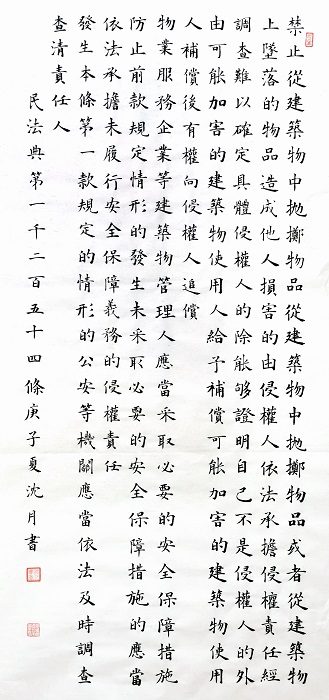 禁止從建築物中拋擲物品從建築物中拋擲物品或者從建築物
上墜落的物品造成他人損害的由侵權人依法承擔侵權責任經
調查難以確定具體侵權人的除能够證明自己不是侵權人的外
由可能加害的建築物使用人給予補償可能加害的建築物使用
人補償後有權向侵權人追償
物業服務企業等建築物管理人應當采取必要的安全保障措施
防止前款規定情形的發生未采取必要的安全保障措施的應當
依法承擔未履行安全保障義務的侵權責任
發生本條第一款規定的情形的公安等機關應當依法及時調查
查清責任人
民法典第一千二百五十四條庚子夏沈月書